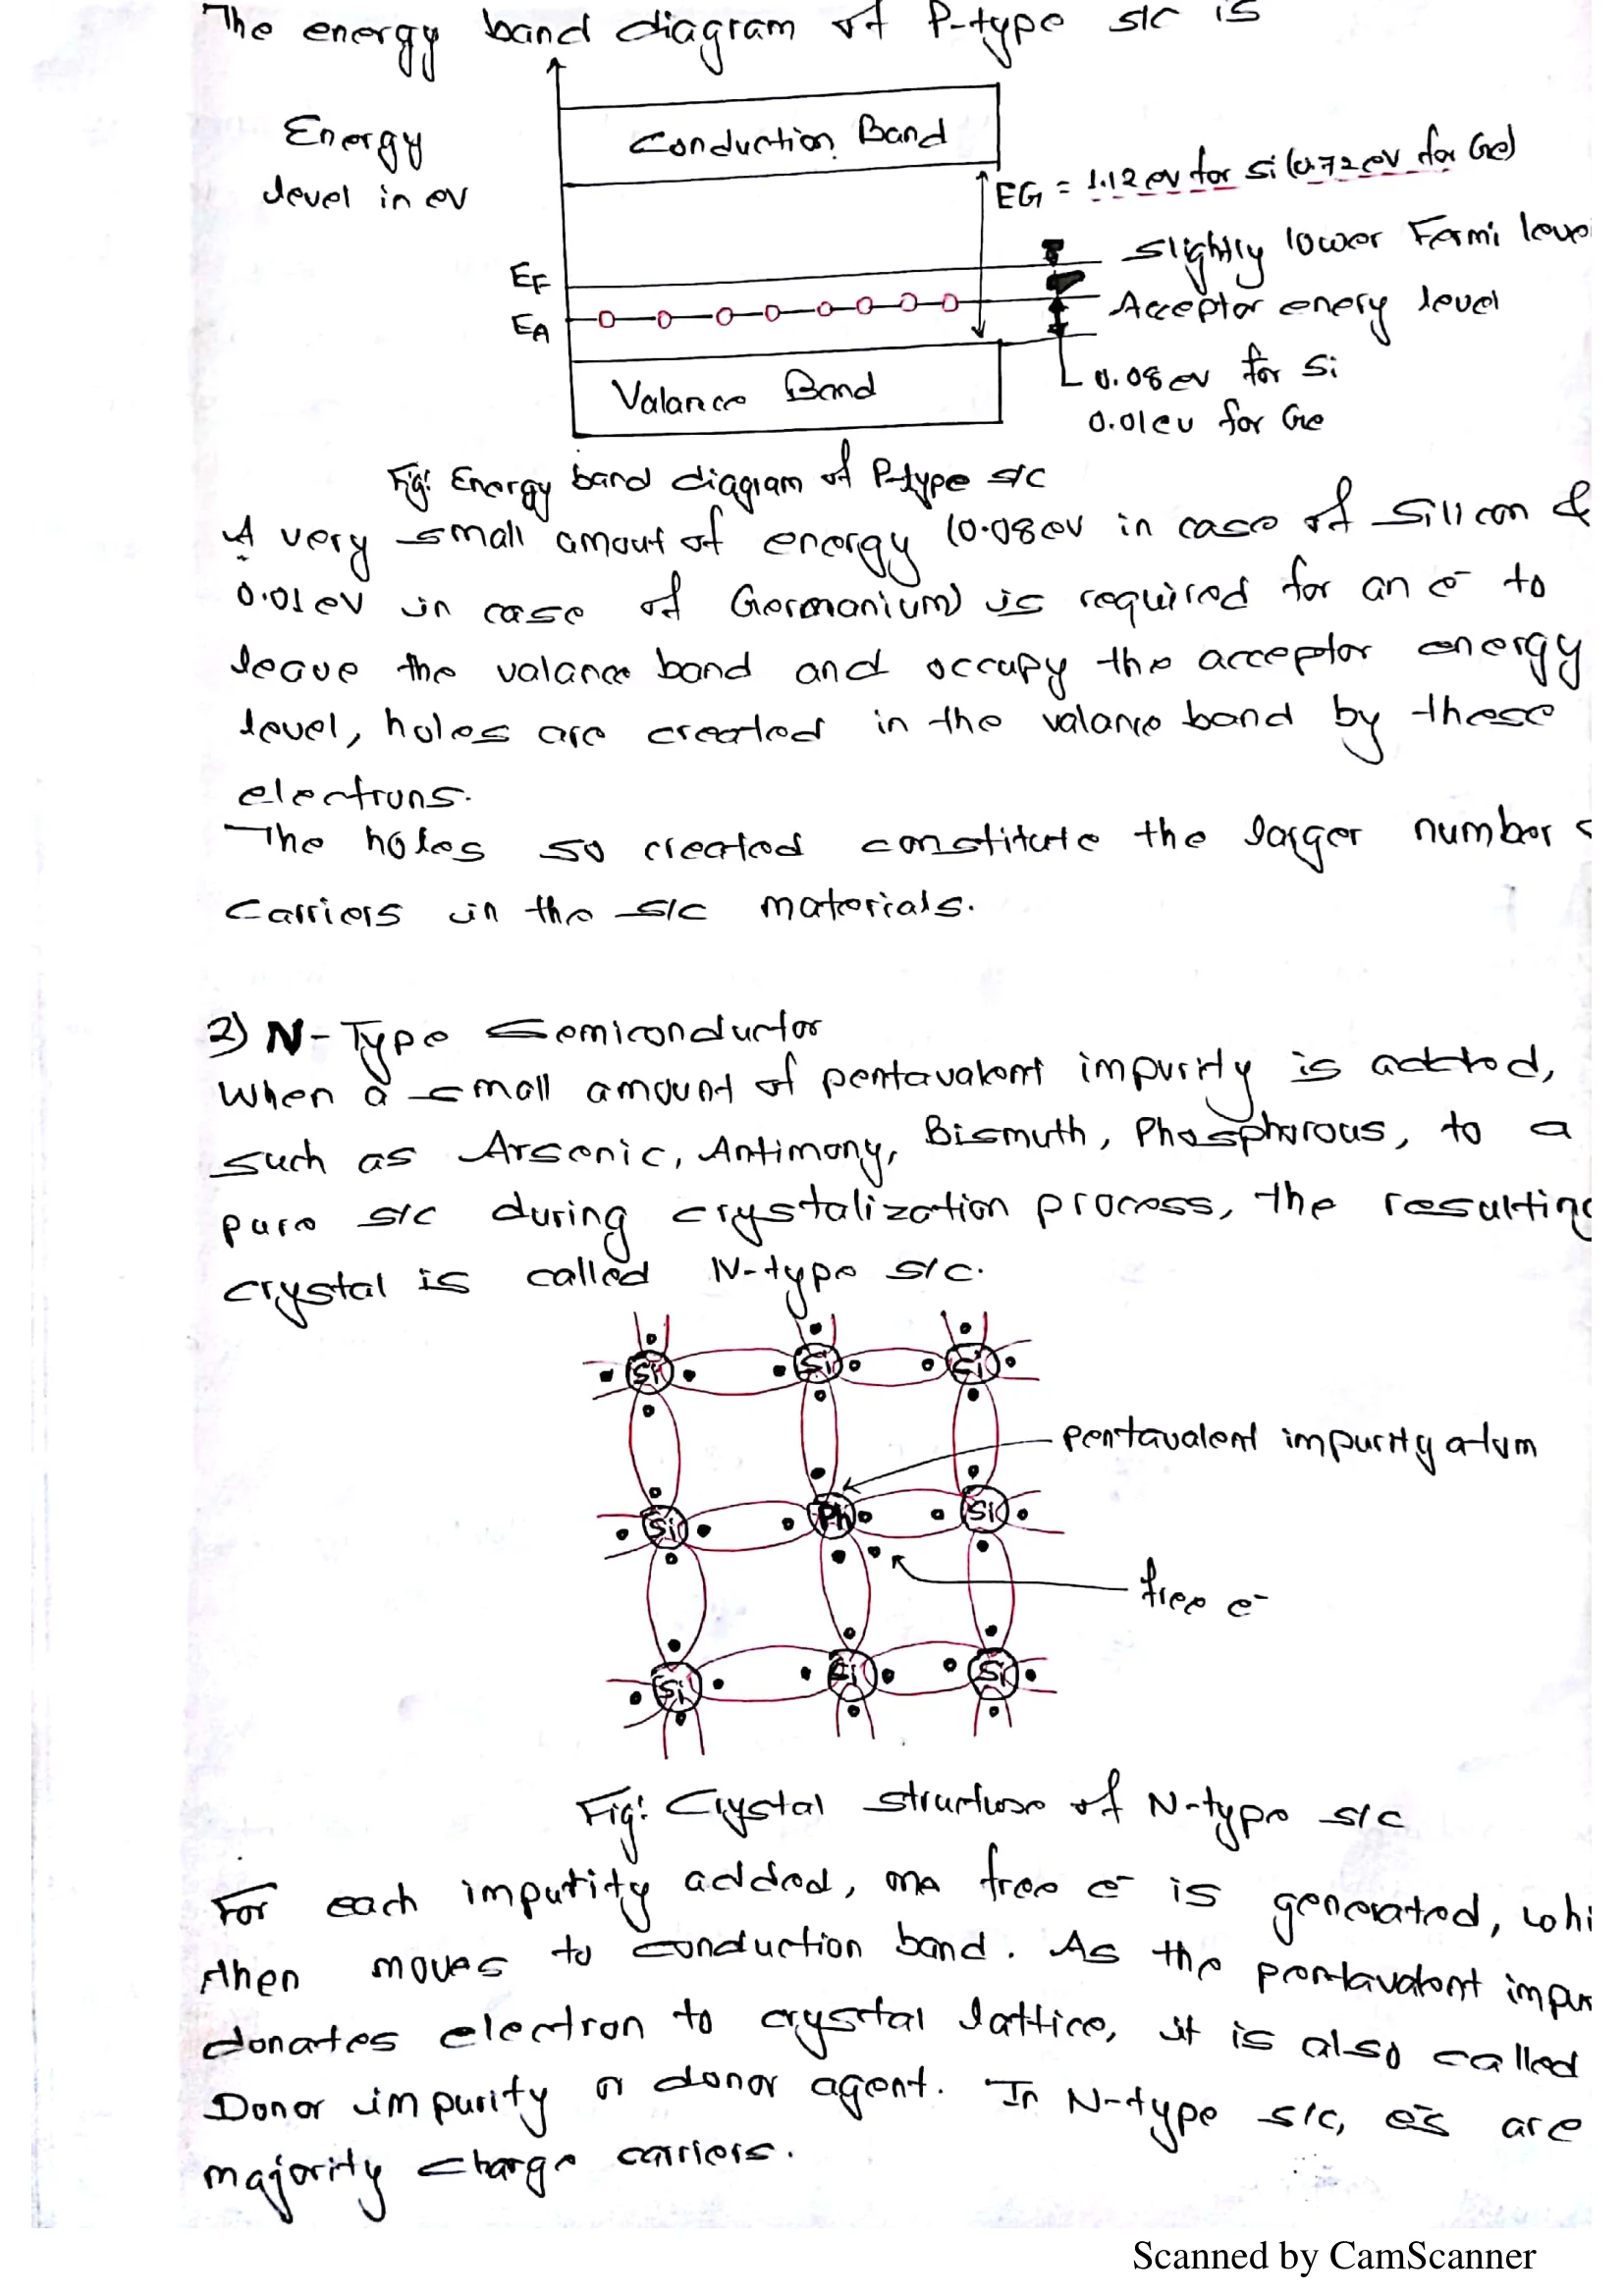 The energy band diagram of P-type s/c is
Energy
level in ev
Conduction Band
EG = 1.12 ev for si (0.72 ev for Ge)
Slightly lower Fermi leve
EF
EA
Acceptor enery level
Valance Band
0.08 ev for Si
0.01ev for Ge
Fig: Energy band diagram of P-type s/c
A very small amout of energy (0.08ev in case of Silicon &
0.01 ev in case of Germanium) is required for an e- to
leave the valance band and occupy the acceptor energy
level, holes are created in the valance band by these
electrons.
The holes so created constitute the larger number
carriers in the s/c materials.
2) N-Type Semiconductor
When a small amount of pentavalent impurity is added,
such as Arsenic, Antimony, Bismuth, Phosphorous, to a
pure s/c during crystalization process, the resulting
crystal is called N-type s/c.
Si Si Si
pentavalent impurity atom
Si Ph Si
free e-
Si Si Si
Fig: Crystal structure of N-type s/c
For each imputity added, one free e- is generated, whi
then moves to conduction band. As the pentavalent impur
donates electron to crystal lattice, it is also called
Donor impurity or donor agent. In N-type s/c, e-s are
majority charge carriers.
Scanned by CamScanner